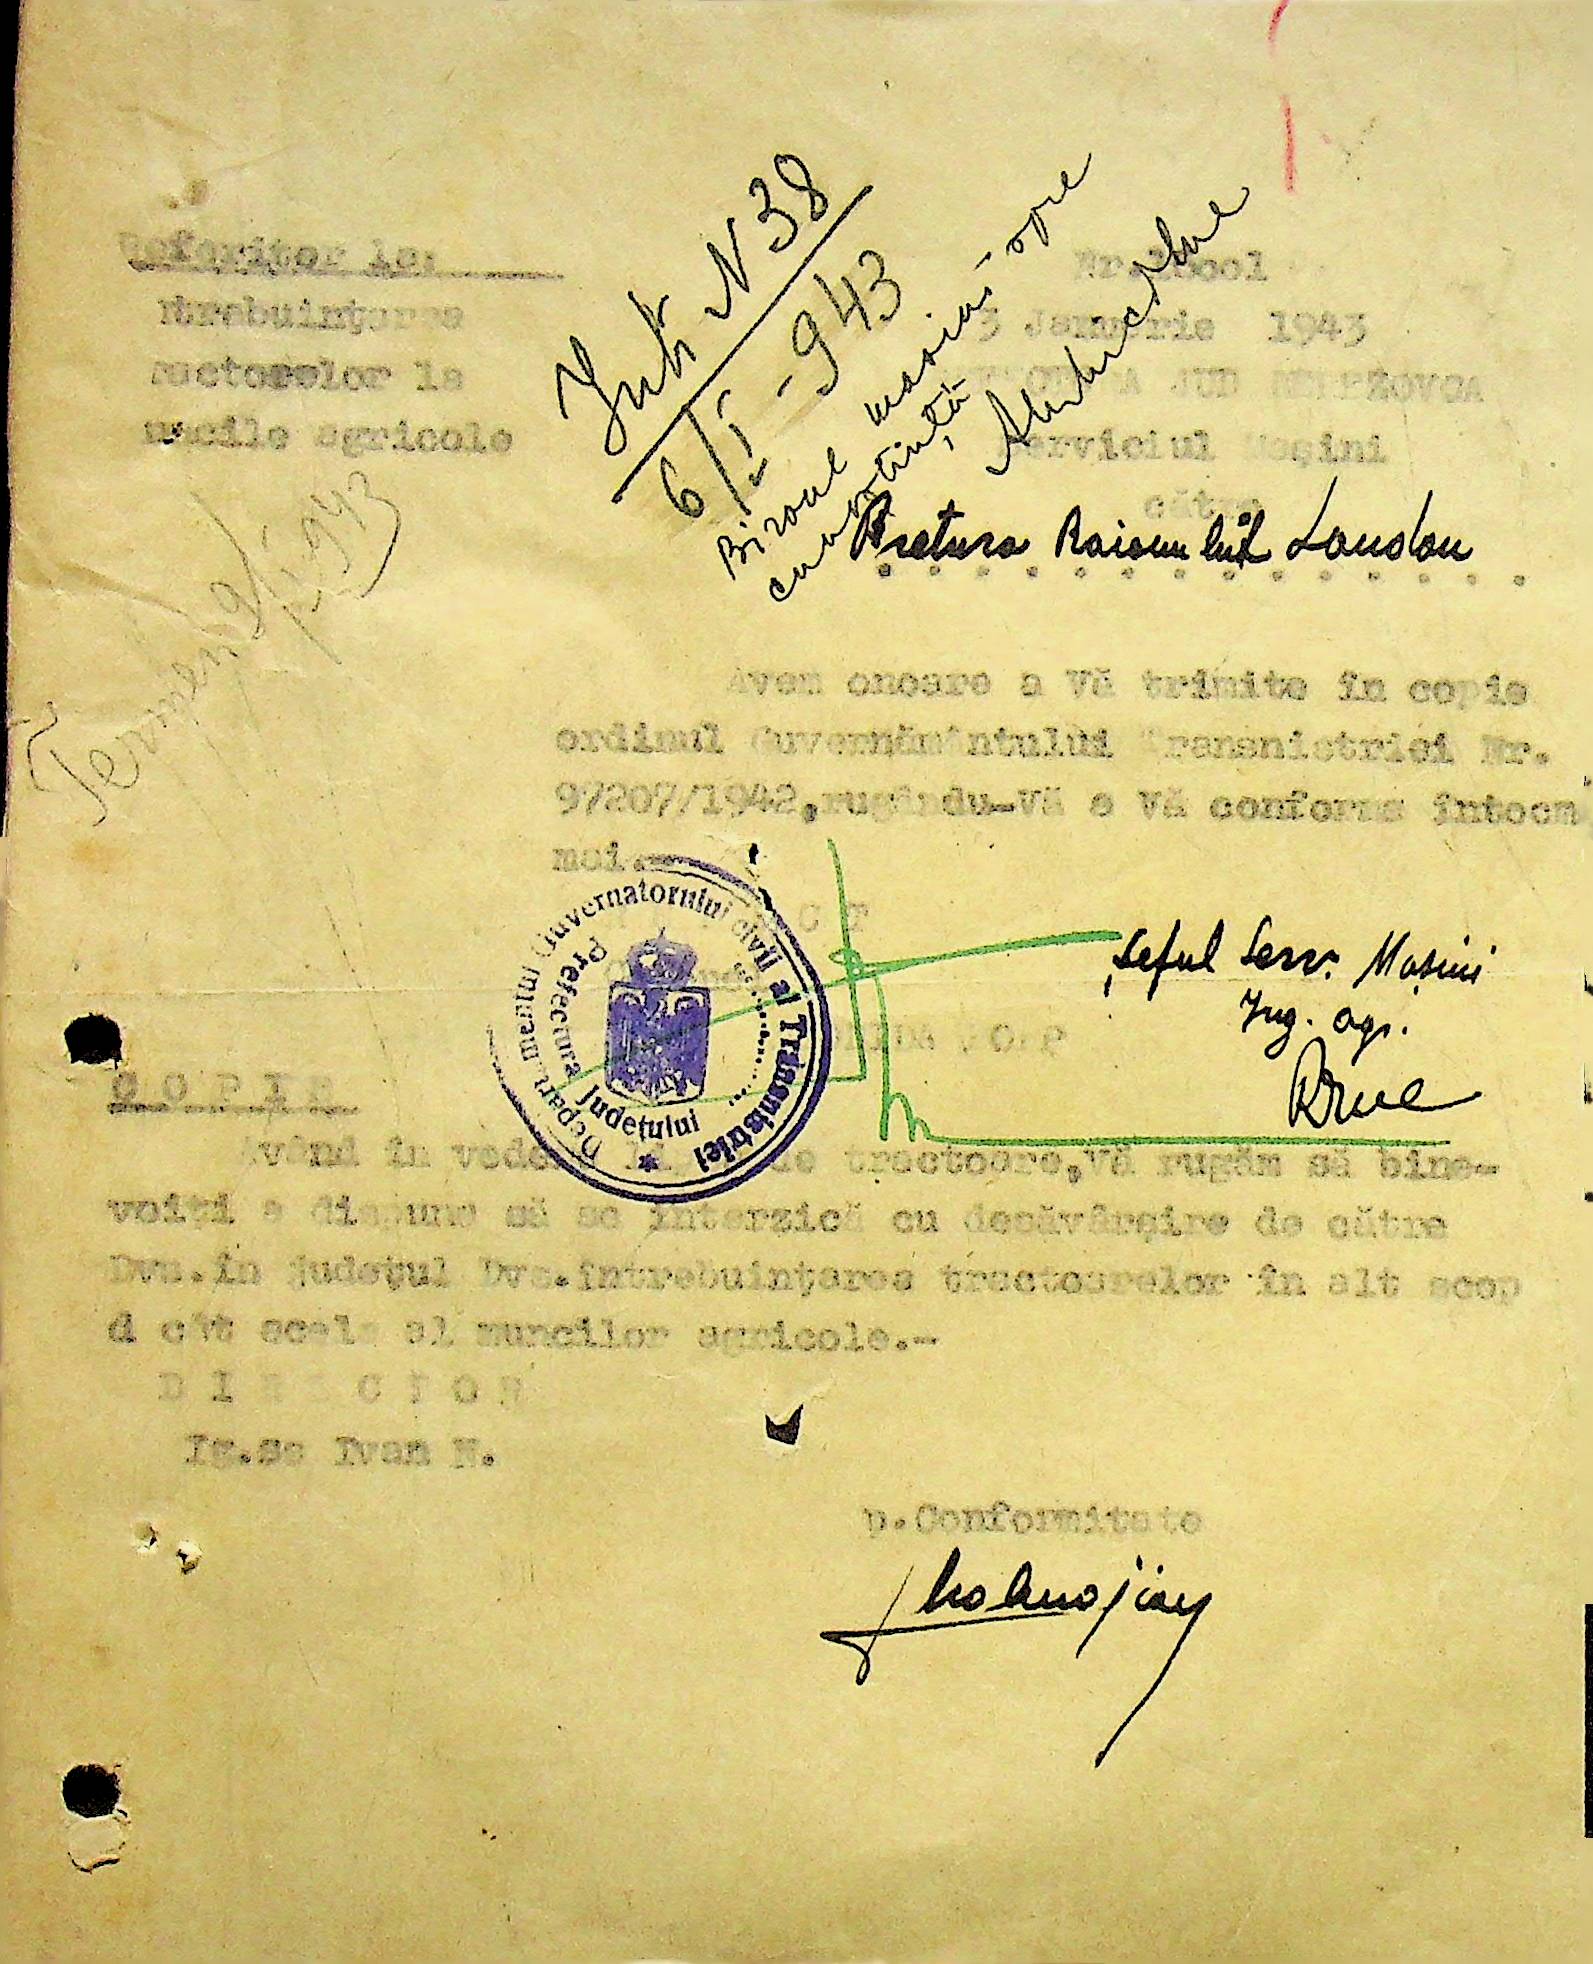 Referitor la:
ntrebuinţarea
ractoarelor la
muncile agricole
Intr N 38
6/I - 943
Biroul maşini - spre
cunoştinţă
3 Januarie 1943
JUD
Serviciul Maşini
către
Pretura Raionului Landau
Avem onoare a Vă trimite în copie
ordinul Guvernământului Transnistriei Nr.
97207/1942,rugându-Vă a Vă conforma întocm
mai.-
Şeful Serv. Maşini
Ing. agr.
Depart. mântul Guvernatorului civil al Transnistriei
Prefectura Judeţului
C O P I E
Având în vedere de tractoare,Vă rugăm să bine-
voiţi a dispune să se interzică cu desăvârşire de către
Dvs.în judeţul Dvs.întrebuinţarea tractoarelor în alt scop
d cât acela al muncilor agricole.-
D I R E C T O R
Ivan N.
p.Conformitate